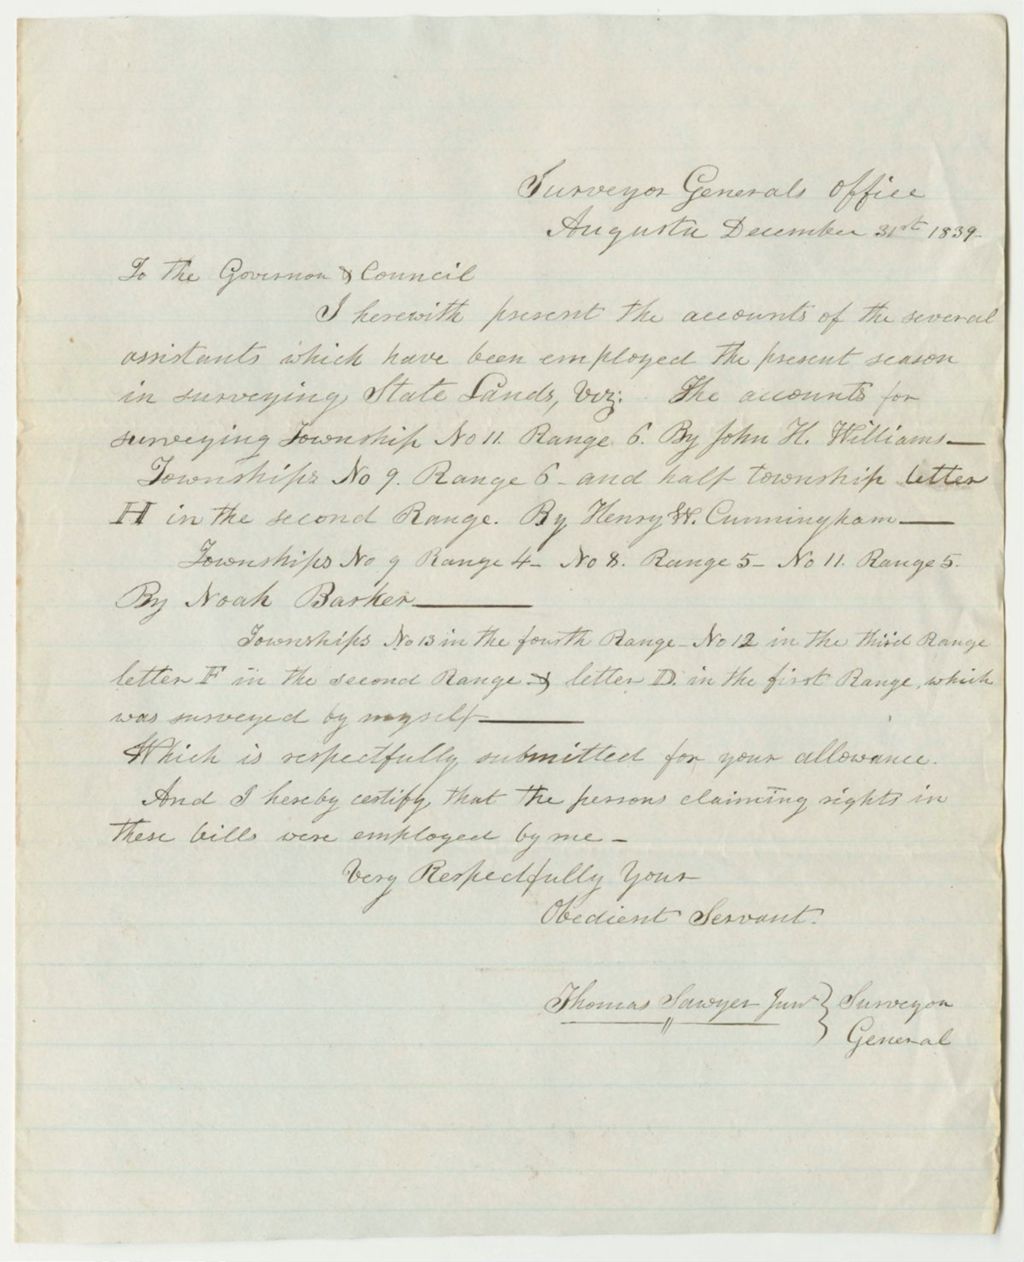 Surveyor Generals Office
Augusta December 31st 1839-
To the Governor & Council
I herewith present the accounts of the several
assistants which have been employed the present season
in surveying State Lands, Viz: The accounts for
surveying Township No 11. Range 6. By John H. Williams—
Townships No 9. Range 6 - and half township letter
H in the second Range. By Henry W. Cunningham—
Townships No 9 Range 4- No 8. Range 5- No 11. Range 5.
By Noah Barker—
Townships No 13 in the fourth Range - No 12 in the third Range
letter F in the second Range - & letter D. in the first Range, which
was surveyed by myself—
Which is respectfully submitted for your allowance.
And I hereby certify, that the persons claiming rights in
these bills were employed by me -
Very Respectfully Your
Obedient Servant.
Thomas Sawyer Junr } Surveyor
General